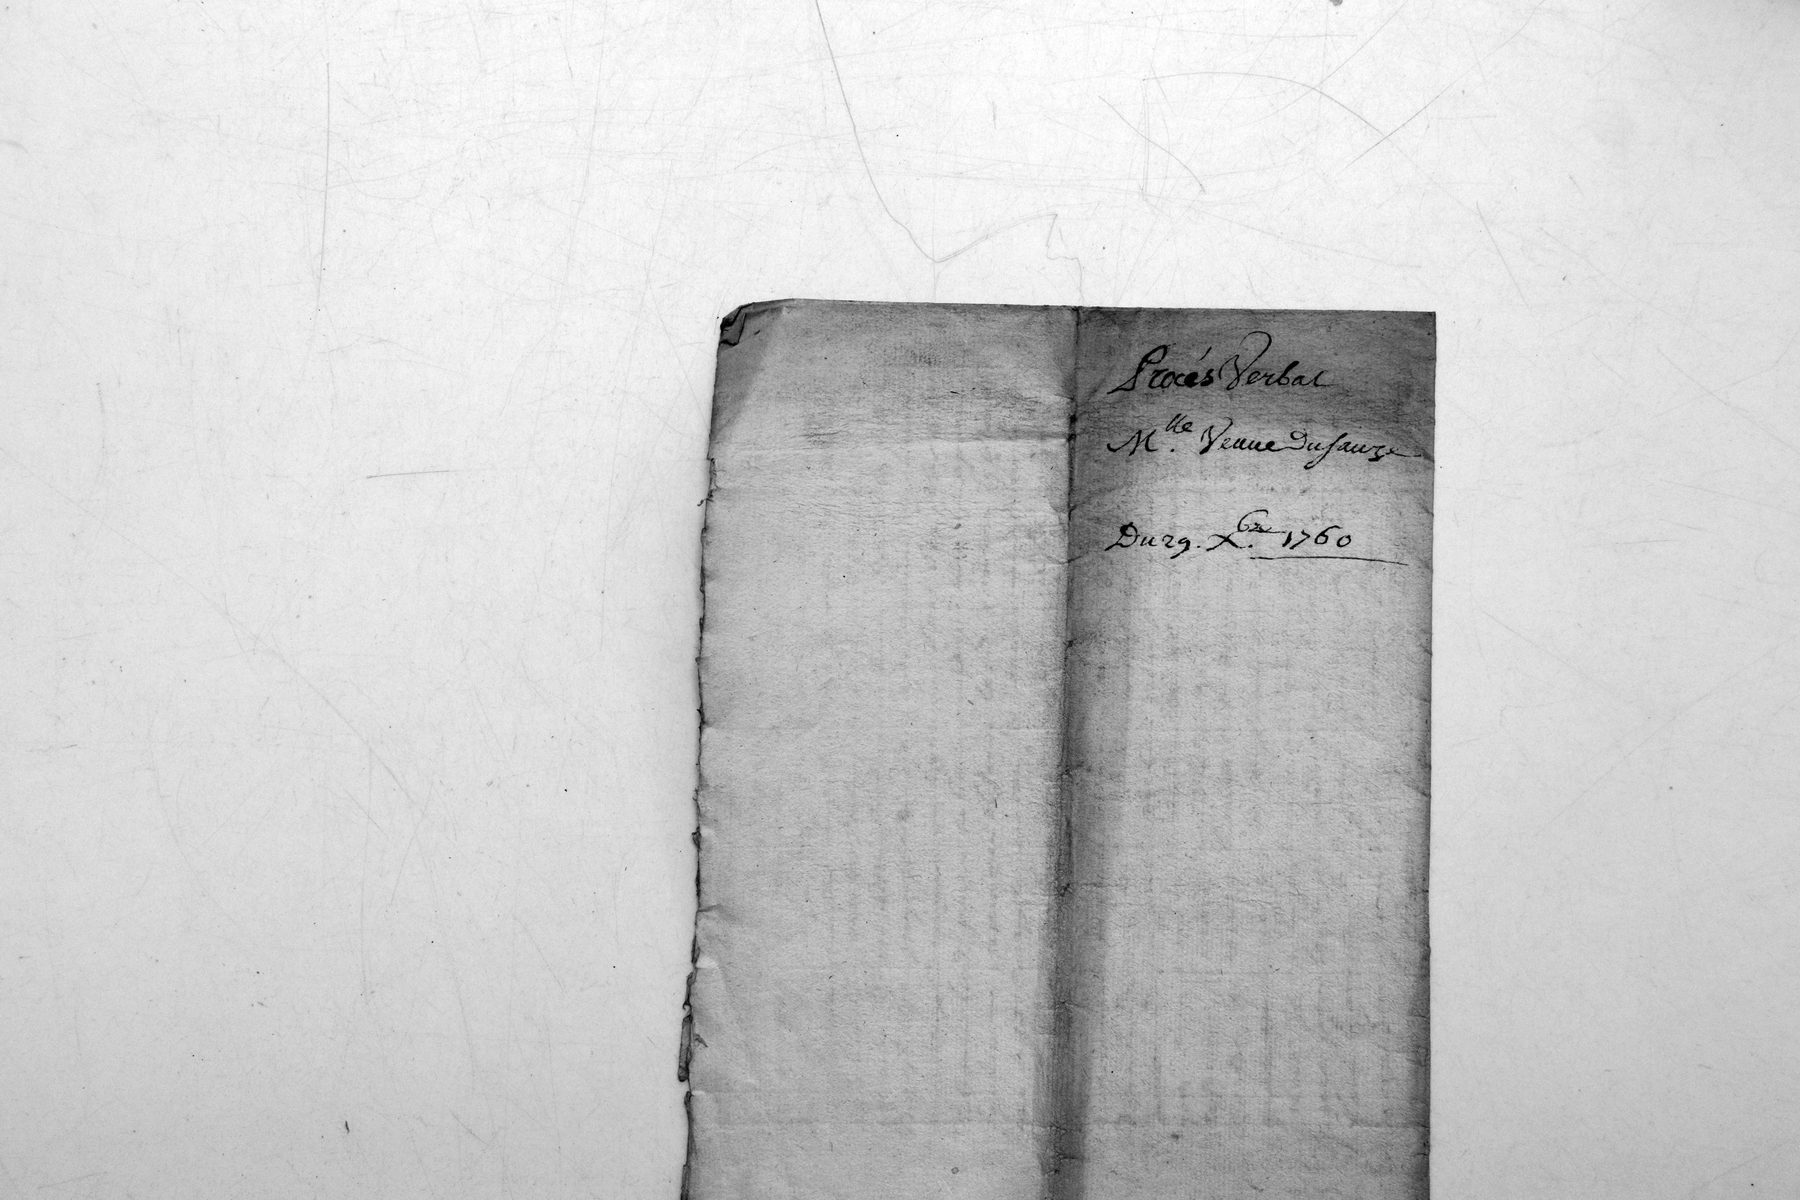 Procés Verbal
M.lle Veuue Dusauze
Du 29. Xbre 1760